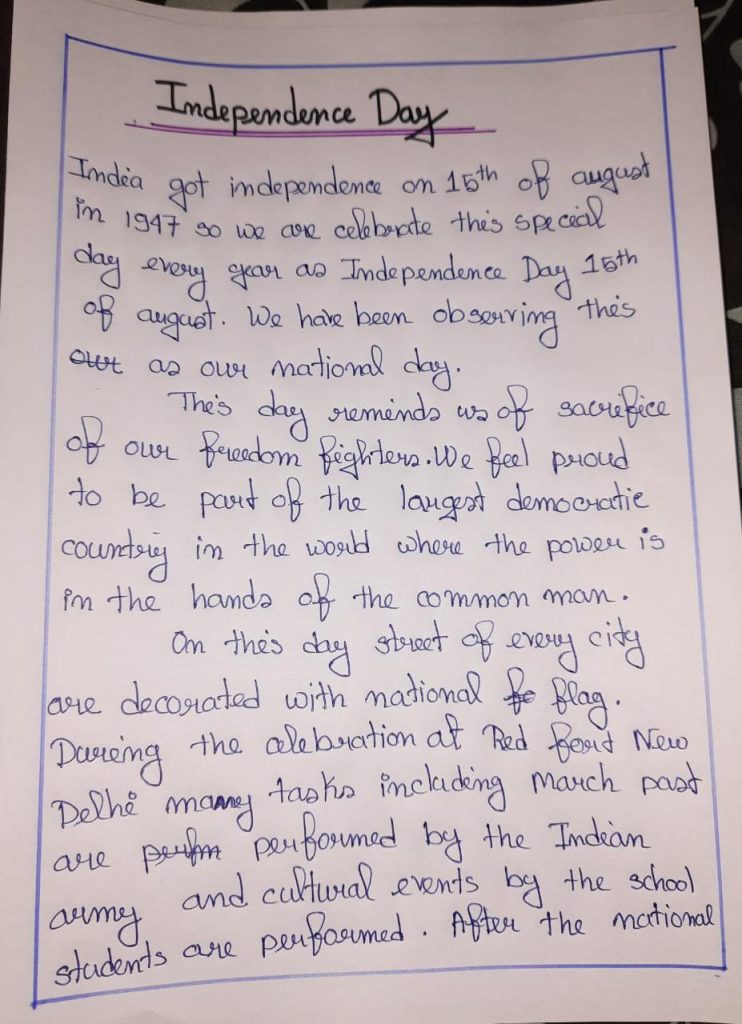 Independence Day
India got independence on 15th of august
in 1947 so we are celebrate this special
day every year as Independence Day 15th
of august. We have been observing this
our as our national day.
This day reminds us of sacrifice
of our freedom fighters. We feel proud
to be part of the largest democratic
country in the world where the power is
in the hands of the common man.
On this day street of every city
are decorated with national fo flag.
During the celebration at Red fort New
Delhi many tasks including March past
are perfm performed by the Indian
army and cultural events by the school
students are performed. After the national